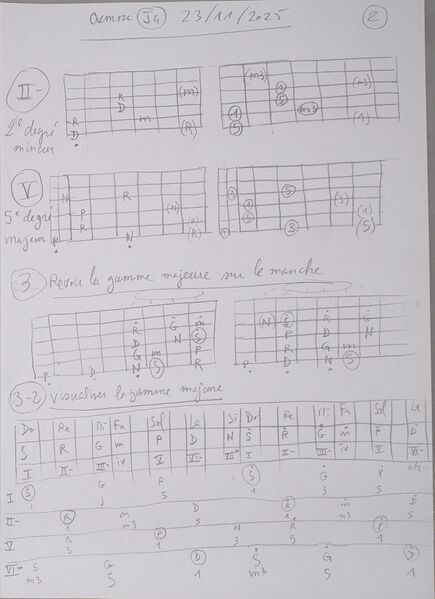 23/11/2025 2
II-
2e degré
mineur
R D R D m (m) (R)
(m3) 1 5 1 5 m3 (m3) (1) 5
V
5e degré
majeur
N P R R N (N) (R) (R)
1 3 1 5 5 3 (3) (1) (5)
3 Revoir la gamme majeure sur le manche
P D R D G N m S G N m S P R
P N S P R D R D G N m S G N
3-2 Visualiser la gamme majeure
Do Re Mi Fa Sol La Si Do Re Mi Fa Sol La
S R G m P D N S R G m P D
I II- III- iv V VI- VII° I II- III- iv V VI-
etc..
I S G P S G P
1 3 5 1 3 5
II- R m D R m D
1 m3 5 1 m3 5
V R P N R P
5 1 3 5 1
VI- S G D S G S
m3 5 1 m3 5 1